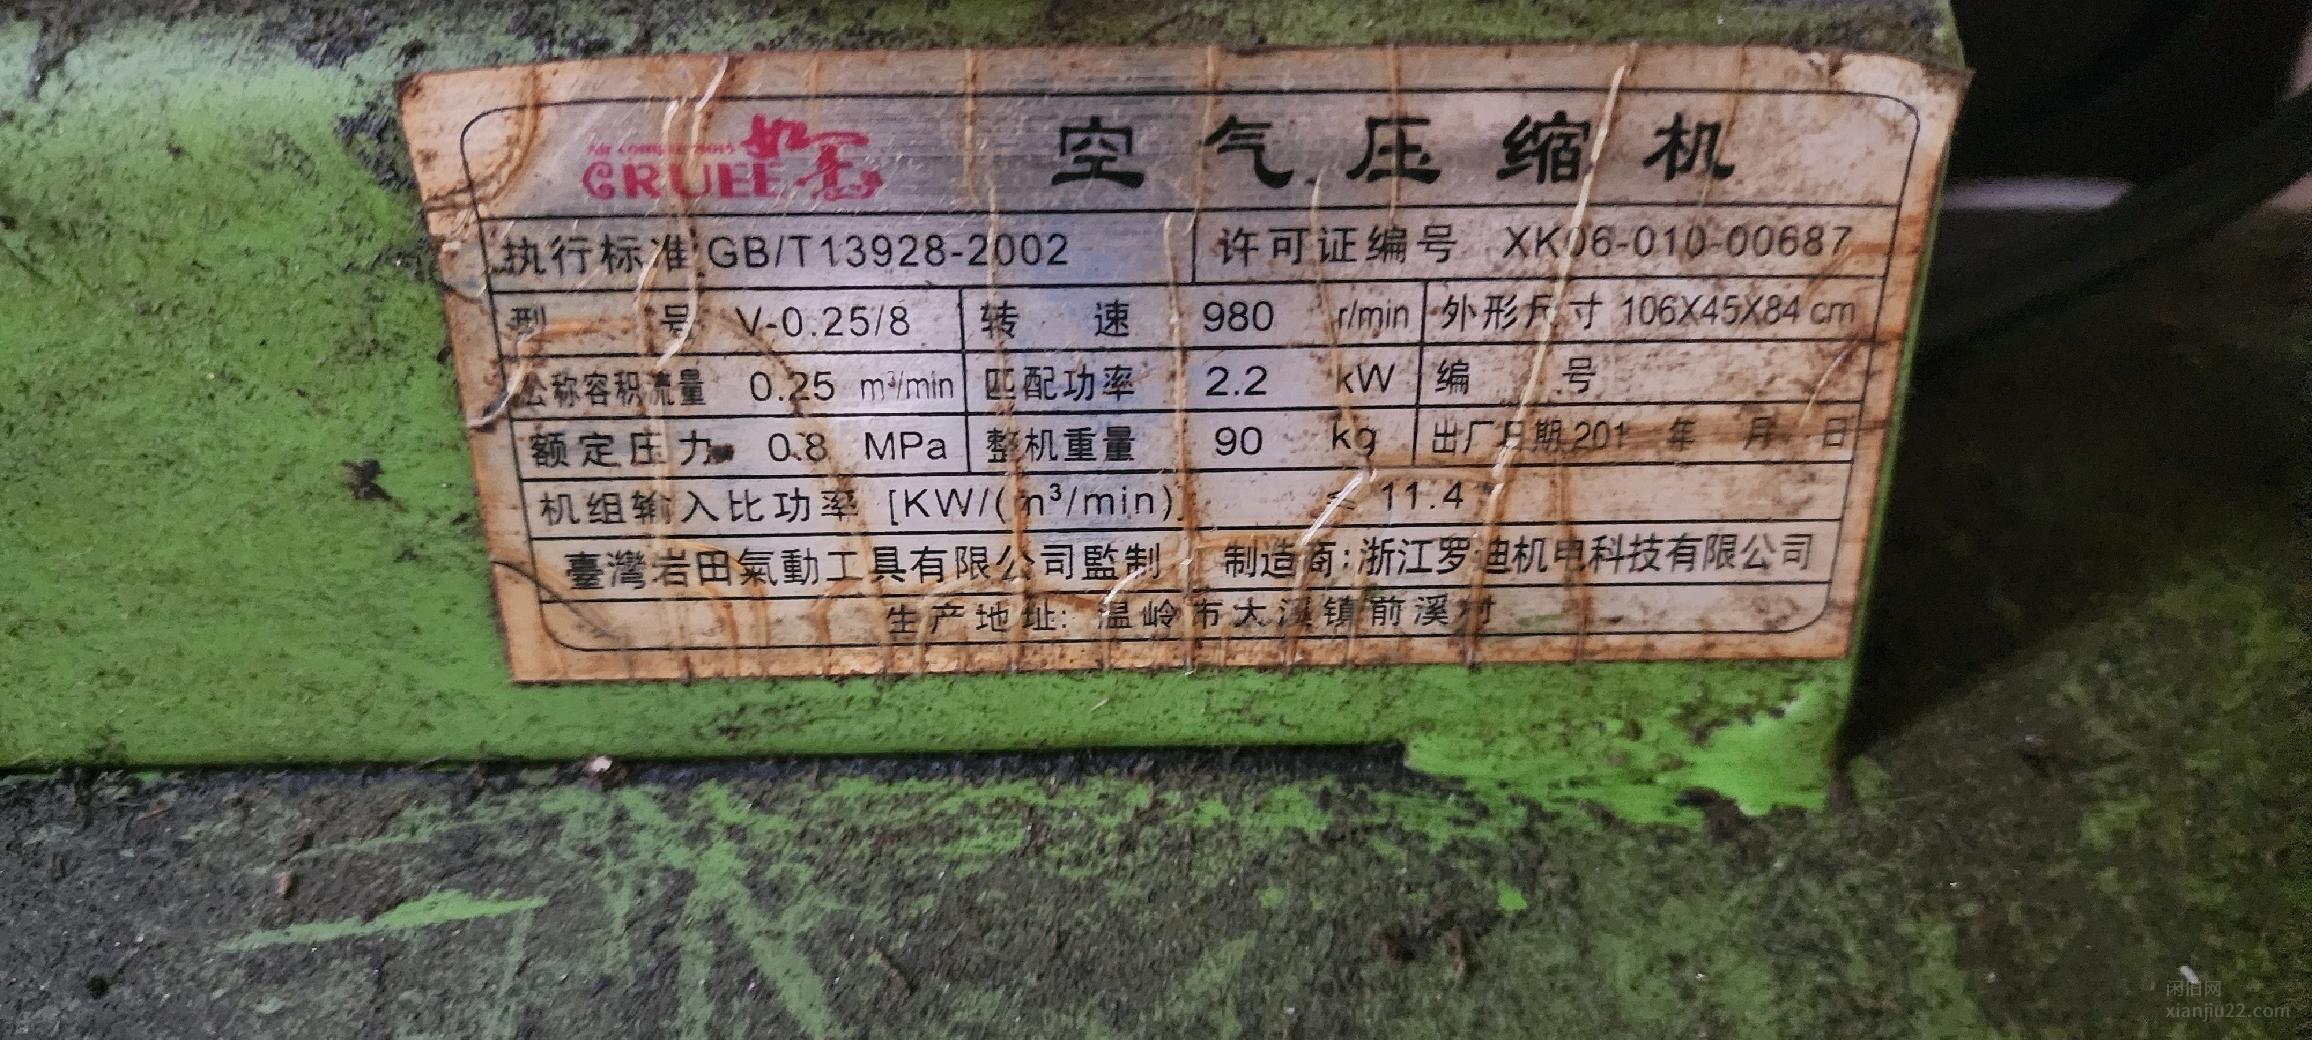 AIR COMPRESSORS
GRUEE
空气压缩机
执行标准 GB/T13928-2002 许可证编号 XK06-010-00687
型号 V-0.25/8 转速 980 r/min 外形尺寸 106X45X84 cm
公称容积流量 0.25 m³/min 匹配功率 2.2 kW 编号
额定压力 0.8 MPa 整机重量 90 kg 出厂日期 201 年 月 日
机组输入比功率 [KW/(m³/min)] ≤ 11.4
臺灣岩田氣動工具有限公司監制 制造商:浙江罗迪机电科技有限公司
生产地址: 温岭市大溪镇前溪村
闲旧网
xianjiu22.com